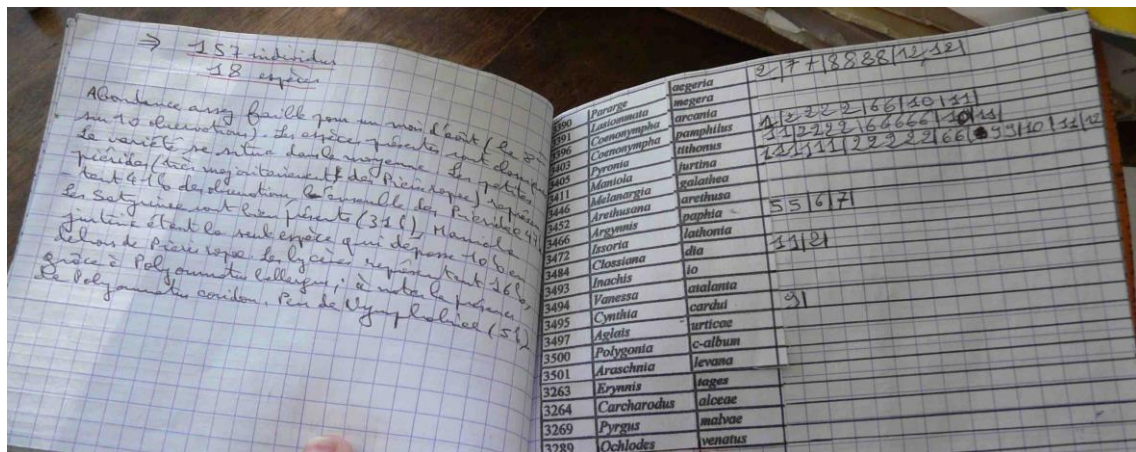 ⇒ 157 individus
18 espèces
Abondance assez faible pour un mois d'août (le 8e
sur 10 observations). Les espèces présentes sont
La variété se situe dans la moyenne. Les petites
piérides (très majoritairement des Pieris rapae) représen-
tent 41% des observations, l'ensemble des Pieridae 44%
Les Satyrinae sont bien présents (31%), Maniola
jurtina étant la seule espèce qui dépasse 10% en
dehors de Pieris rapae. Les lycènes représentent 16%,
grâce à Polyommatus bellargus ; à noter la présence
de Polyommatus coridon. Peu de Nymphalinae (5%)
3390 Pararge aegeria 2|77|8888|12,12|
3391 Lasiommata megera
3396 Coenonympha arcania
3403 Coenonympha pamphilus 1|2222|66|10|11|
3405 Pyronia tithonus
3411 Maniola jurtina
3446 Melanargia galathea
3452 Arethusana arethusa
3466 Argynnis paphia 55|6|7|
3472 Issoria lathonia
3484 Clossiana dia 11|2|
3493 Inachis io
3494 Vanessa atalanta
3495 Cynthia cardui 9|
3497 Aglais urticae
3500 Polygonia c-album
3501 Araschnia levana
3263 Erynnis tages
3264 Carcharodus alceae
3269 Pyrgus malvae
3289 Ochlodes venatus